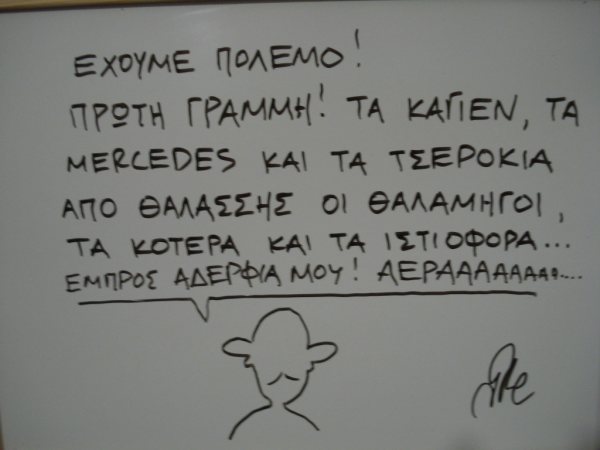 ΕΧΟΥΜΕ ΠΟΛΕΜΟ!
ΠΡΩΤΗ ΓΡΑΜΜΗ! ΤΑ ΚΑΓΙΕΝ, ΤΑ
MERCEDES ΚΑΙ ΤΑ ΤΣΕΡΟΚΙΑ
ΑΠΟ ΘΑΛΑΣΣΗΣ ΟΙ ΘΑΛΑΜΗΓΟΙ,
ΤΑ ΚΟΤΕΡΑ ΚΑΙ ΤΑ ΙΣΤΙΟΦΟΡΑ...
ΕΜΠΡΟΣ ΑΔΕΡΦΙΑ ΜΟΥ! ΑΕΡΑΑΑΑΑΑΑΑ....